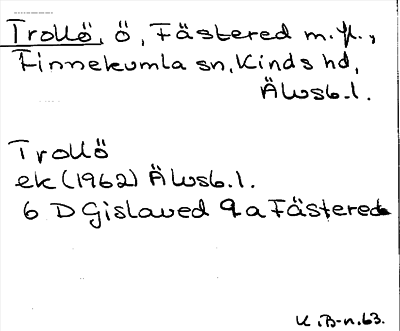 Trollö, ö, Fästered m.fl.,
Finnekumla sn, Kinds hd,
Älvsb.l.
Trollö
ek (1962) Älvsb.l.
6 D Gislaved 9 a Fästered
K.B-n.63.